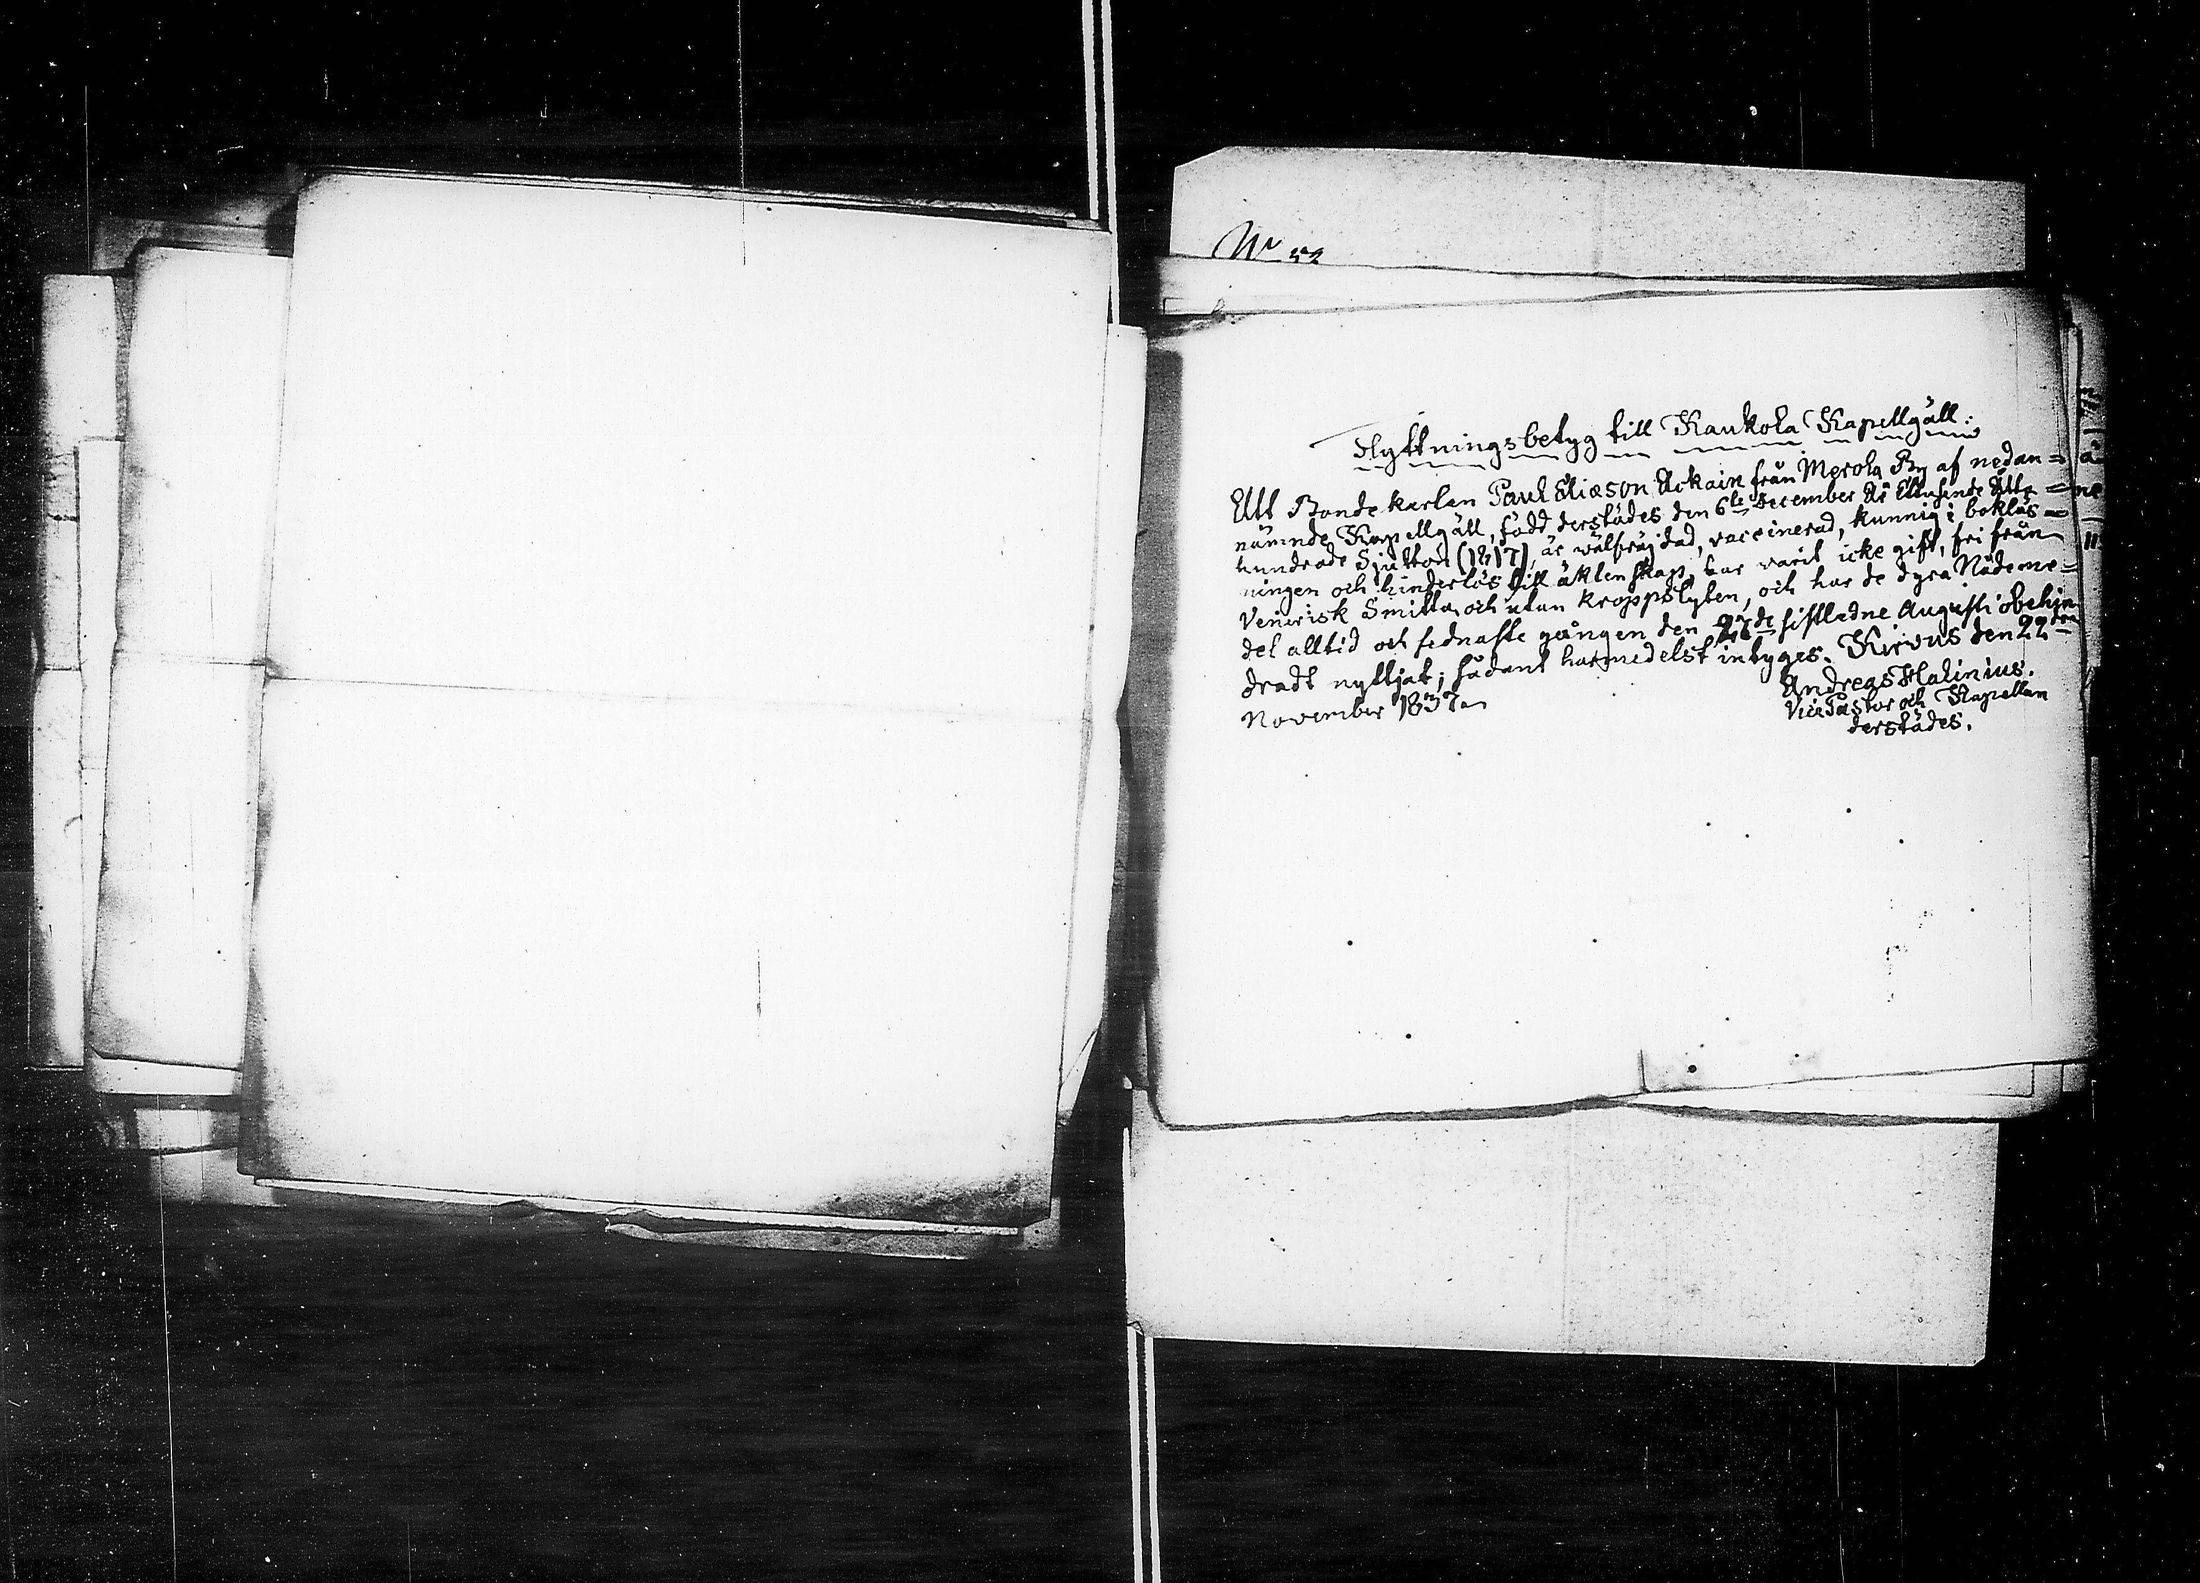 Nr 52
Flyttningsbetyg till Kaukola Kapellgäll:
Att Bondekarlen Paul Eliæson Ackain från Merola By af nedan=
nämnde Kapellgäll, född derstädes den 6te December År Ettusende Åtta
hundrade Sjutton (1817), är wälfräjdad, vaccinerad, kunnig i bokläs=
ningen och hinderlös till äktenskap, har varit icke gift, fri från
Venerisk Smitta och utan kroppslyten, och har de dyra Nådeme=
del alltid och sednaste gången den 27de sistledne Augusti obehin
dradt nyttjat; sådant harmedelst intyges. Kirvus den 22dra
November 1837.
Andreas Halinius.
Vice Pastor och Kapellan
derstädes.